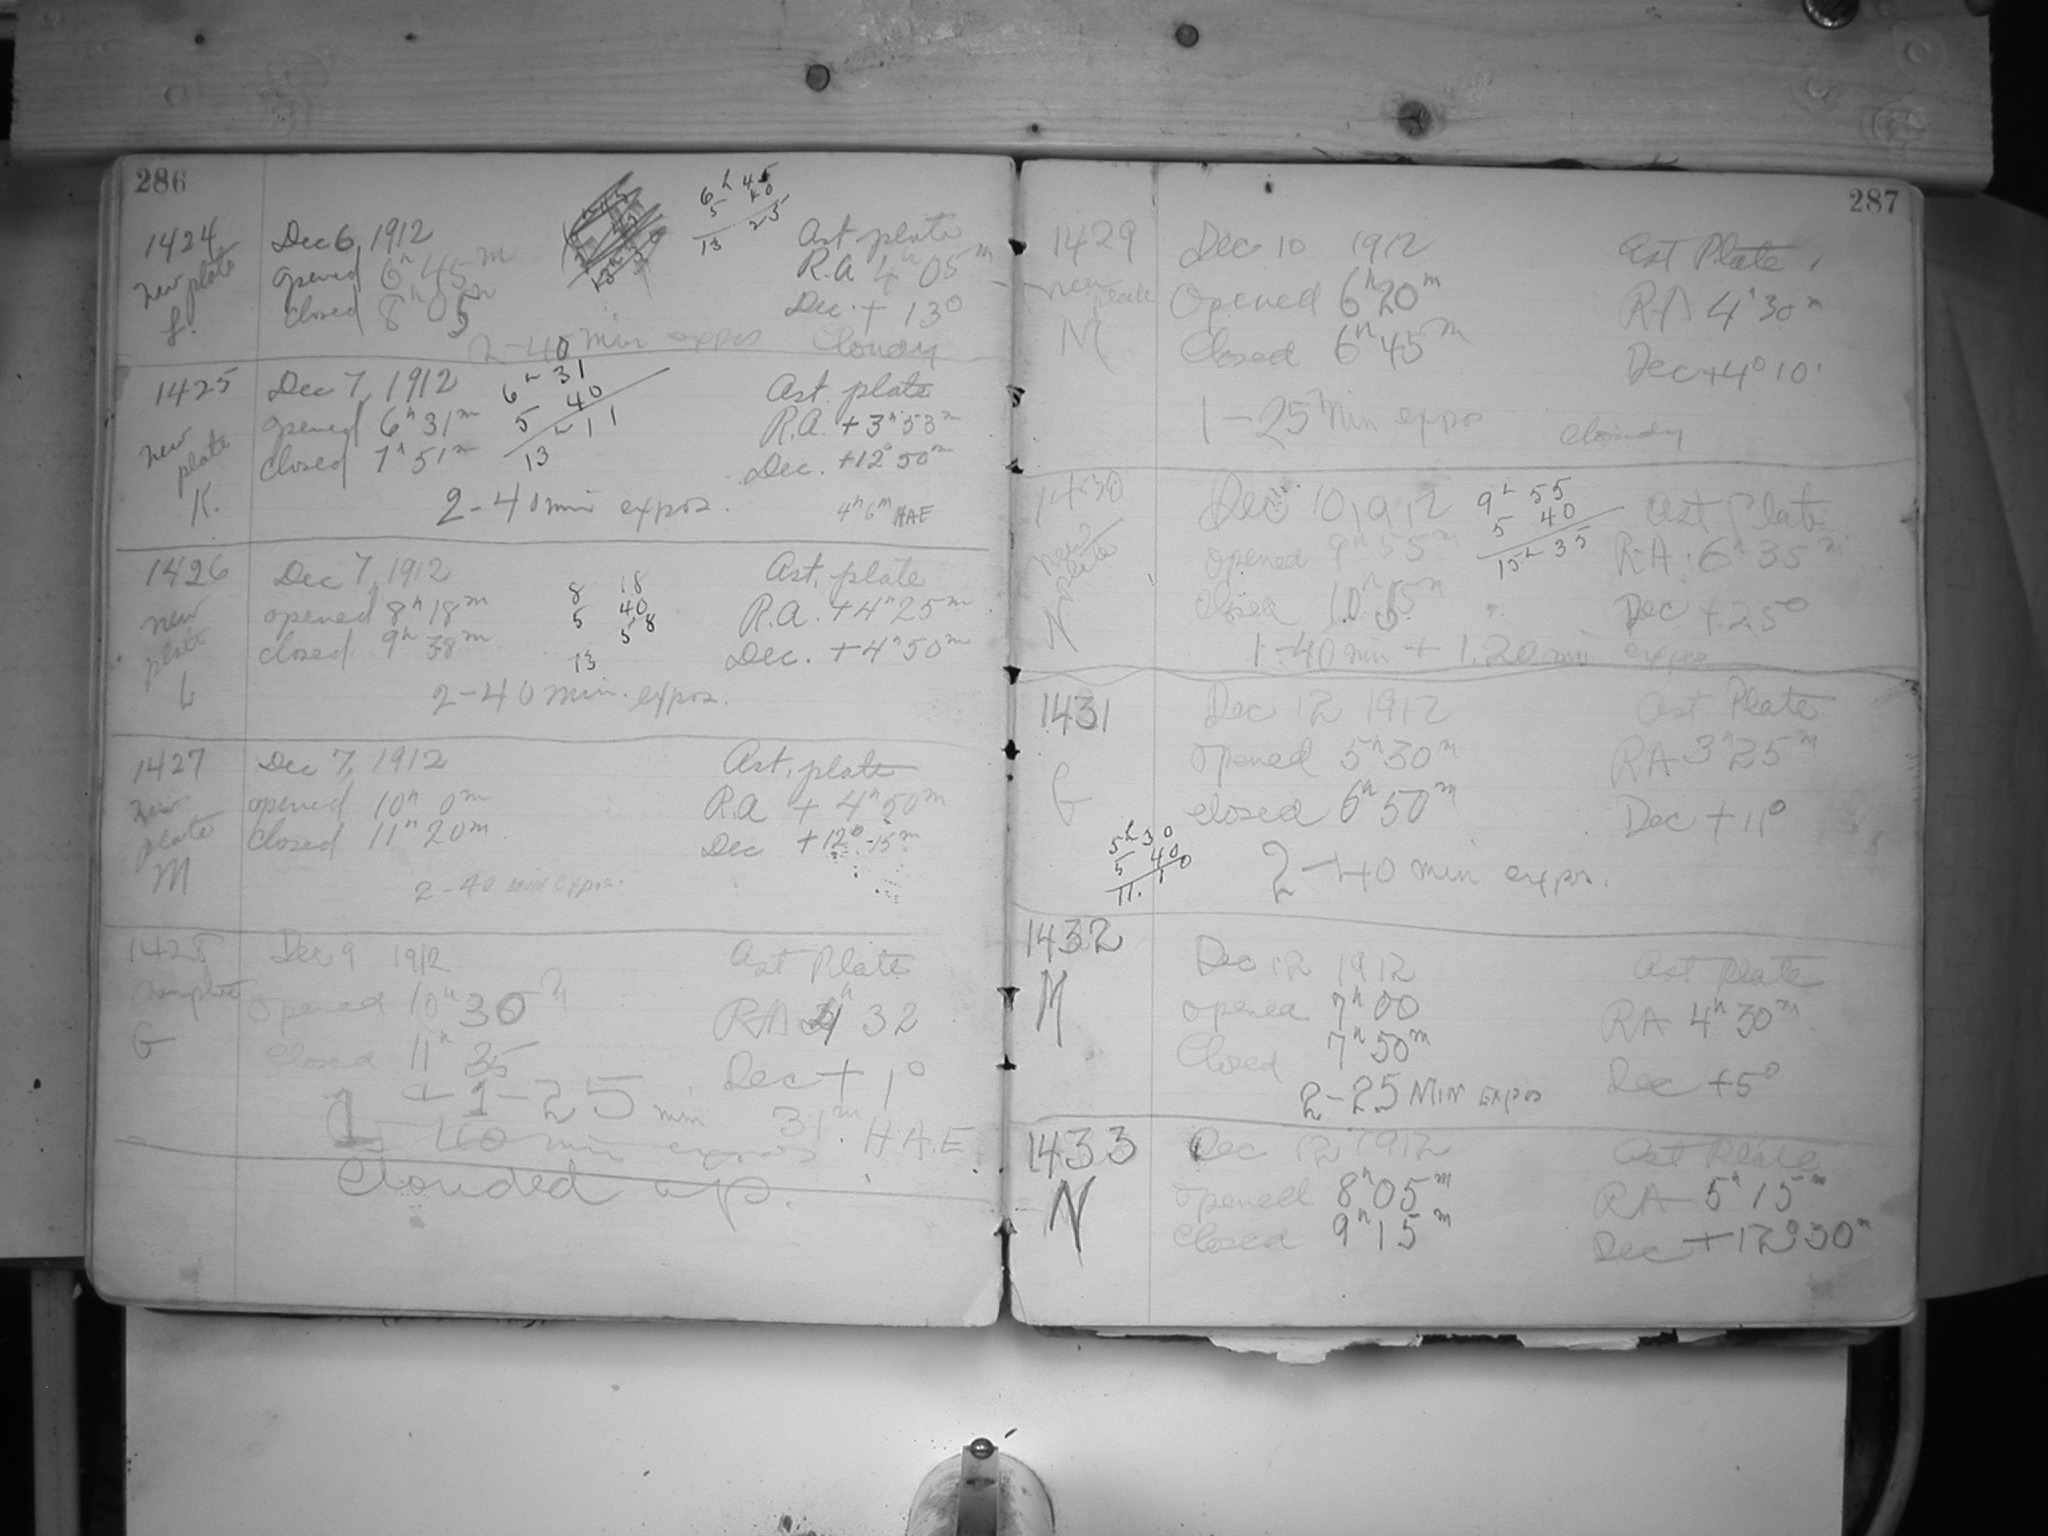 286
1424
new plate
L.
Dec 6, 1912
opened 6h 45m
closed 8h 05m
6h 45
5 40
13 25
Ast. plate
R.A 4h 05m
Dec. + 13°
2-40 min expos Cloudy
1425
new plate
K.
Dec 7, 1912
opened 6h 31m
closed 7h 51m
6h 31
5 40
13h 11
Ast. plate
R.A. +3h 53m
Dec. +12° 50m
2-40 min expos.
4h 6m HAE
1426
new plate
L
Dec 7, 1912
opened 8h 18m
closed 9h 38m
8 18
5 40
13 58
Ast. plate
R.A. +4h 25m
Dec. +4° 50m
2-40 min. expos.
1427
new plate
M
Dec 7, 1912
opened 10h 0m
closed 11h 20m
Ast. plate
R.A + 4h 50m
Dec +12° -15m
2-40 min expos.
1428
G
Dec 9 1912
opened 10h 30m
closed 11h 35
Ast Plate
RA 4h 32
Dec + 1°
+ 1-25 min 31m H.A.E
min expos
Clouded up.
287
1429
new plate
M
Dec 10 1912
Opened 6h 20m
Closed 6h 45m
Ast Plate
RA 4h 30m
Dec +4° 10'
1-25 Min expos cloudy
1430
new plate
N
Dec 10, 1912
opened 9h 55m
closed 10h 55m
9h 55
5 40
15h 35
Ast Plate
RA. 6h 35m
Dec +25°
1-40 min + 1,20 min expos
1431
G
Dec 12 1912
opened 5h 30m
closed 6h 50m
5h 30
5 40
11. 10
Ast Plate
RA 3h 25m
Dec +11°
2-40 min expos.
1432
M
Dec 12 1912
opened 7h 00
Closed 7h 50m
Ast plate
RA 4h 30m
Dec +5°
2-25 MIN EXPOS
1433
N
Dec 12 1912
opened 8h 05m
closed 9h 15m
Ast Plate
RA 5h 15m
Dec +12° 30m